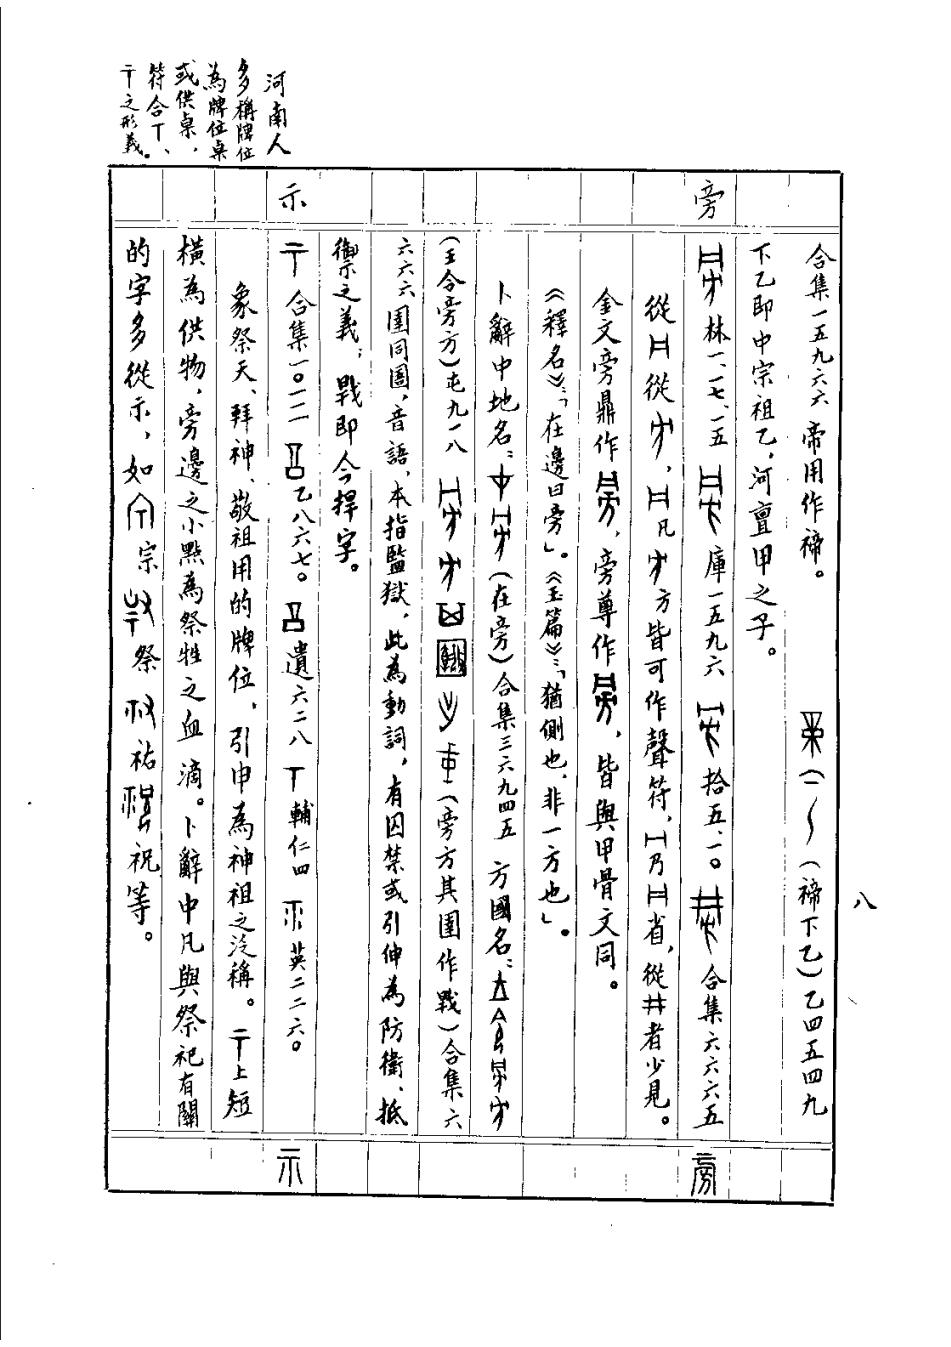 合集一五九六六 帝用作禘。 (禘下乙)乙四五四九
下乙即中宗祖乙,河亶甲之子。
旁
林一、一七、一五 庫一五九六 拾五、一〇 合集六六六五
從 從 , 凡 方皆可作聲符, 乃 省,從井者少見。
金文旁鼎作 ,旁尊作 ,皆與甲骨文同。
《釋名》:「在邊曰旁」。《玉篇》:「猶側也、非一方也」。
卜辭中地名: (在旁)合集三六九四五 方國名:
(王令旁方)屯九一八 (旁方其圉作戰)合集六
六六六 圉同圄,音語,本指監獄,此為動詞,有囚禁或引伸為防衛、抵
禦之義;戰即今捍字。
示
合集一〇一一 乙八六七〇 遺六二八 輔仁四 英二二六〇
象祭天、拜神、敬祖用的牌位,引申為神祖之泛稱。 上短
橫為供物,旁邊之小點為祭牲之血滴。卜辭中凡與祭祀有關
的字多從示,如 宗 祭 祐 祝等。
河南人
多稱牌位
為牌位桌
或供桌,
符合丅、
之形義。
八